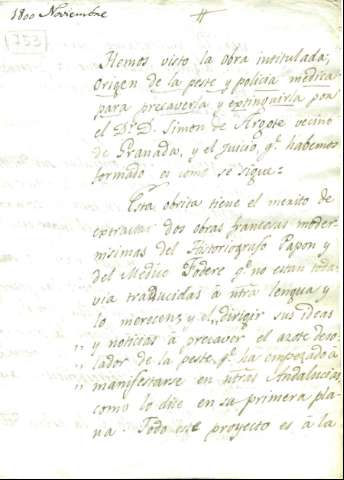 1800 Noviembre
753
Hemos visto la obra intitulada;
Origen de la peste y policia medica
para precaverla y extinguirla por
el Dr. D. Simon de Argote vecino
de Granada, y el juicio, q.e habemos
formado es como se sigue:
Esta obrita tiene el merito de
extractar dos obras francesas moder-
nisimas del Historiografo Papon y
del Medico Foderé q.e no estan toda-
via traducidas á ntra lengua y
lo merecen; y el „dirigir sus ideas
„ y noticias á precaver el azote deso-
„ lador de la peste, q.e ha empezado á
„ manifestarse en ntras Andalucias,
como lo dice en su primera pla-
na. Todo este proyecto es á la